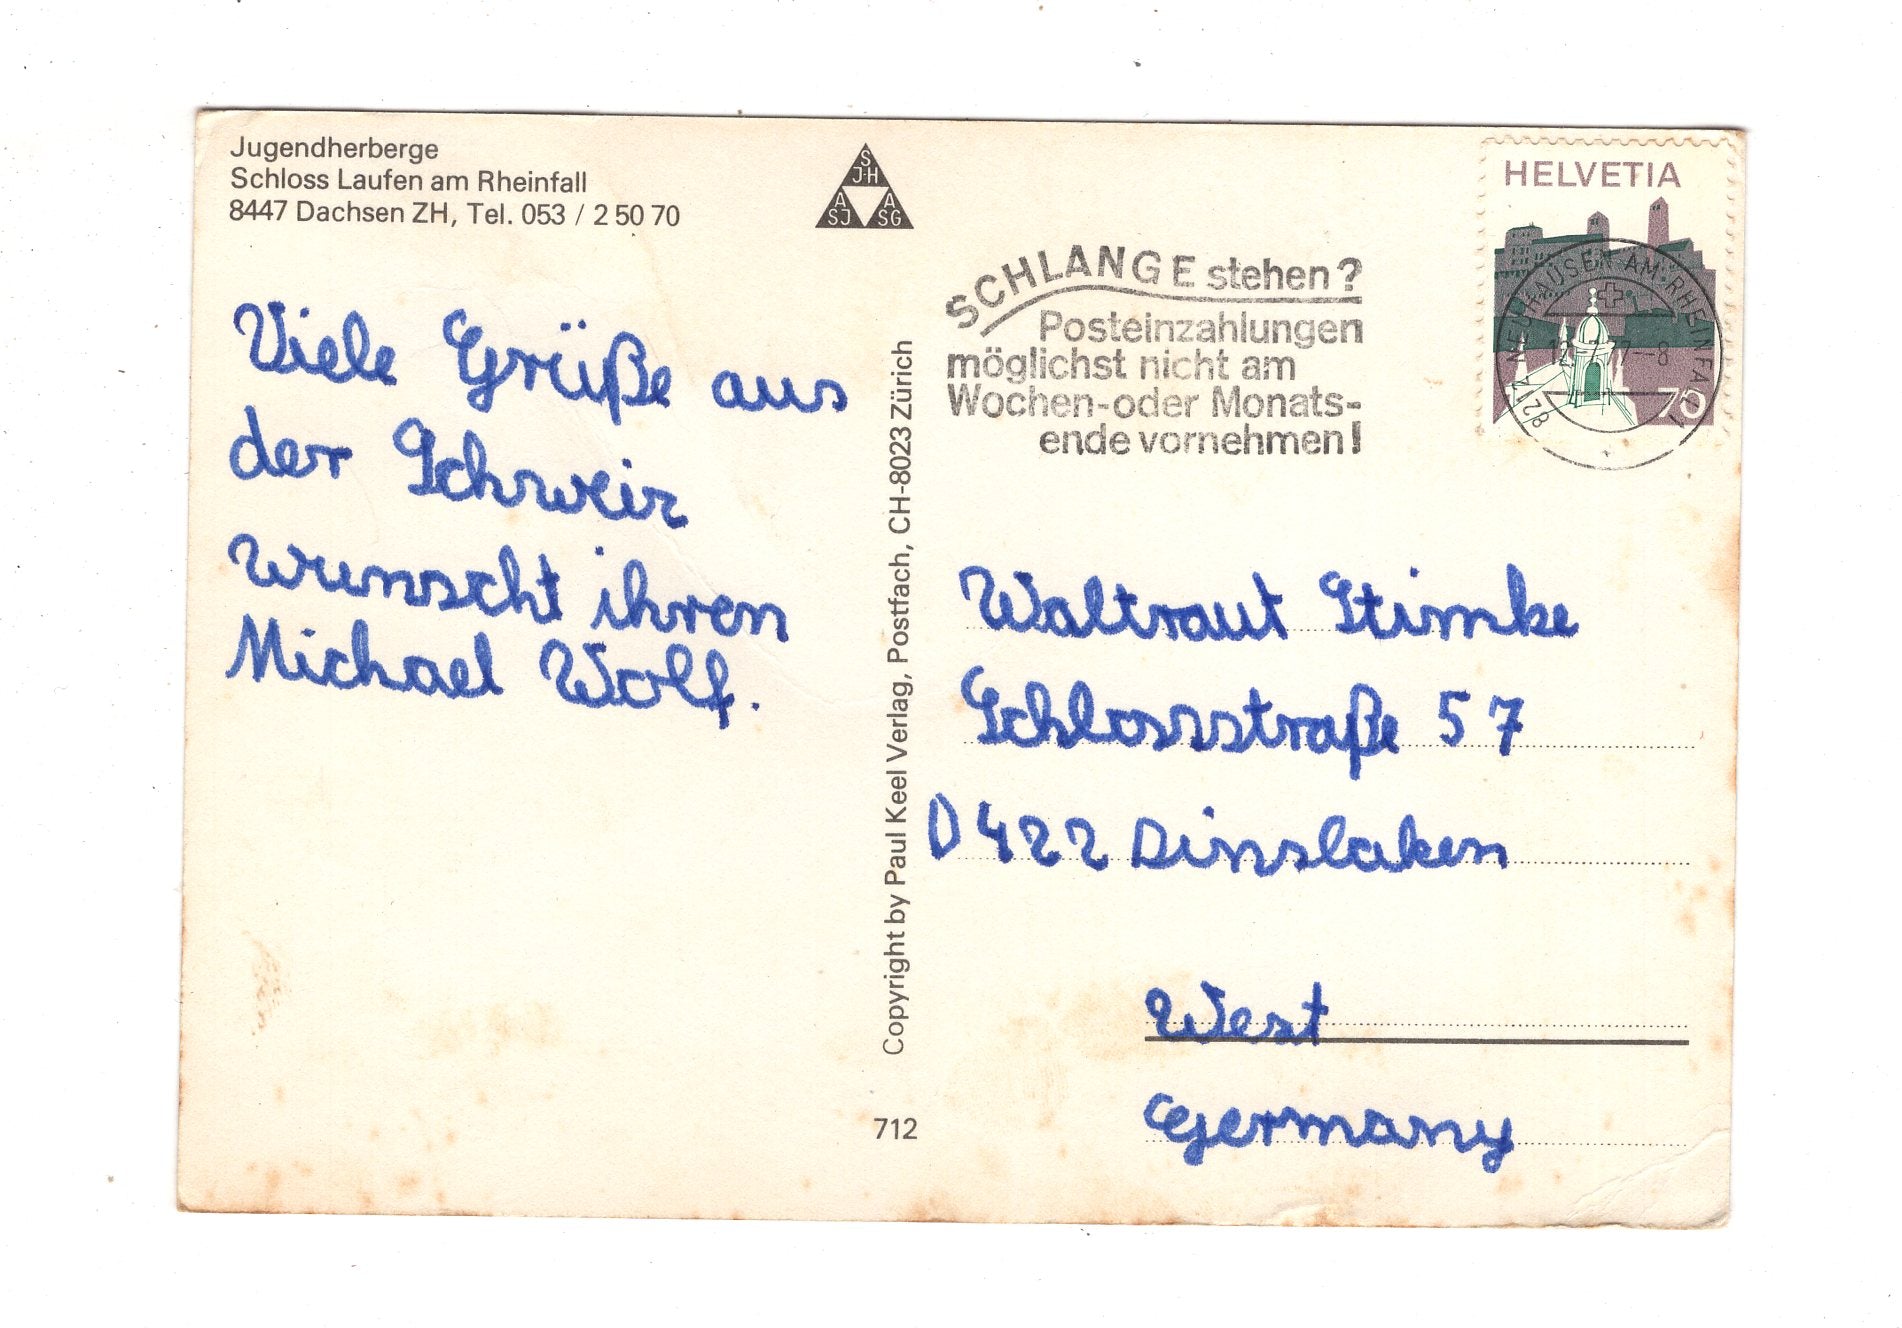 Jugendherberge
Schloss Laufen am Rheinfall
8447 Dachsen ZH, Tel. 053 / 2 50 70
S
J·H
A A
SJ SG
HELVETIA
70
8212 NEUHAUSEN AM RHEINFALL
SCHLANGE stehen?
Posteinzahlungen
möglichst nicht am
Wochen-oder Monats-
ende vornehmen!
Viele Grüße aus
der Schweiz
wunscht ihren
Michael Wolf.
Copyright by Paul Keel Verlag, Postfach, CH-8023 Zürich
712
Waltraut Stimke
Schlossstraße 57
D 422 Dinslaken
West
Germany